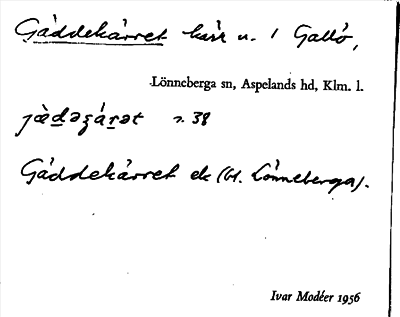 Gäddekärret kärr n. 1 Gallö,
Lönneberga sn, Aspelands hd, Klm. l.
n. 38
Gäddekärret ek (bl. Lönneberga).
Ivar Modéer 1956